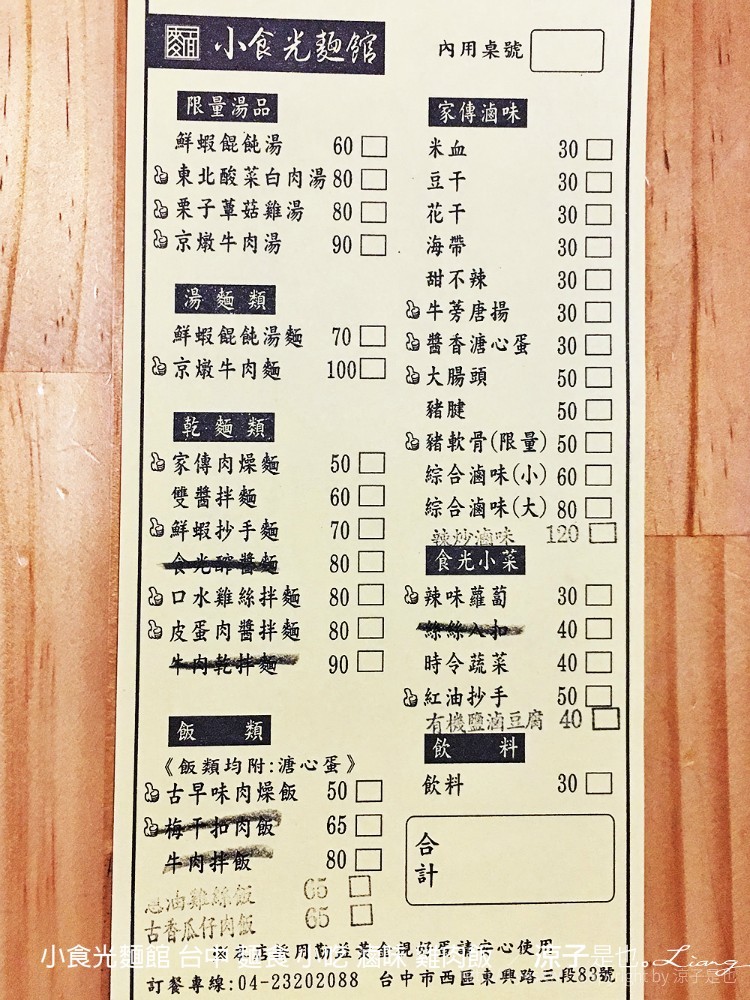 小食光麵館
內用桌號
限量湯品
鮮蝦餛飩湯 60
東北酸菜白肉湯 80
栗子蕈菇雞湯 80
京燉牛肉湯 90
湯麵類
鮮蝦餛飩湯麵 70
京燉牛肉麵 100
乾麵類
家傳肉燥麵 50
雙醬拌麵 60
鮮蝦抄手麵 70
食光醡醬麵 80
口水雞絲拌麵 80
皮蛋肉醬拌麵 80
牛肉乾拌麵 90
飯類
《飯類均附:溏心蛋》
古早味肉燥飯 50
梅干扣肉飯 65
牛肉拌飯 80
蔥油雞絲飯 65
古香瓜仔肉飯 65
家傳滷味
米血 30
豆干 30
花干 30
海帶 30
甜不辣 30
牛蒡唐揚 30
醬香溏心蛋 30
大腸頭 50
豬腱 50
豬軟骨(限量) 50
綜合滷味(小) 60
綜合滷味(大) 80
辣炒滷味 120
食光小菜
辣味蘿蔔 30
絲絲入扣 40
時令蔬菜 40
紅油抄手 50
有機鹽滷豆腐 40
飲料
飲料 30
合計
請安心使用
小食光麵館 台中 麵食 小吃 滷味 雞肉飯 涼子是也。Liang
訂餐專線:04-23202088 台中市西區東興路三段83號
by 涼子是也